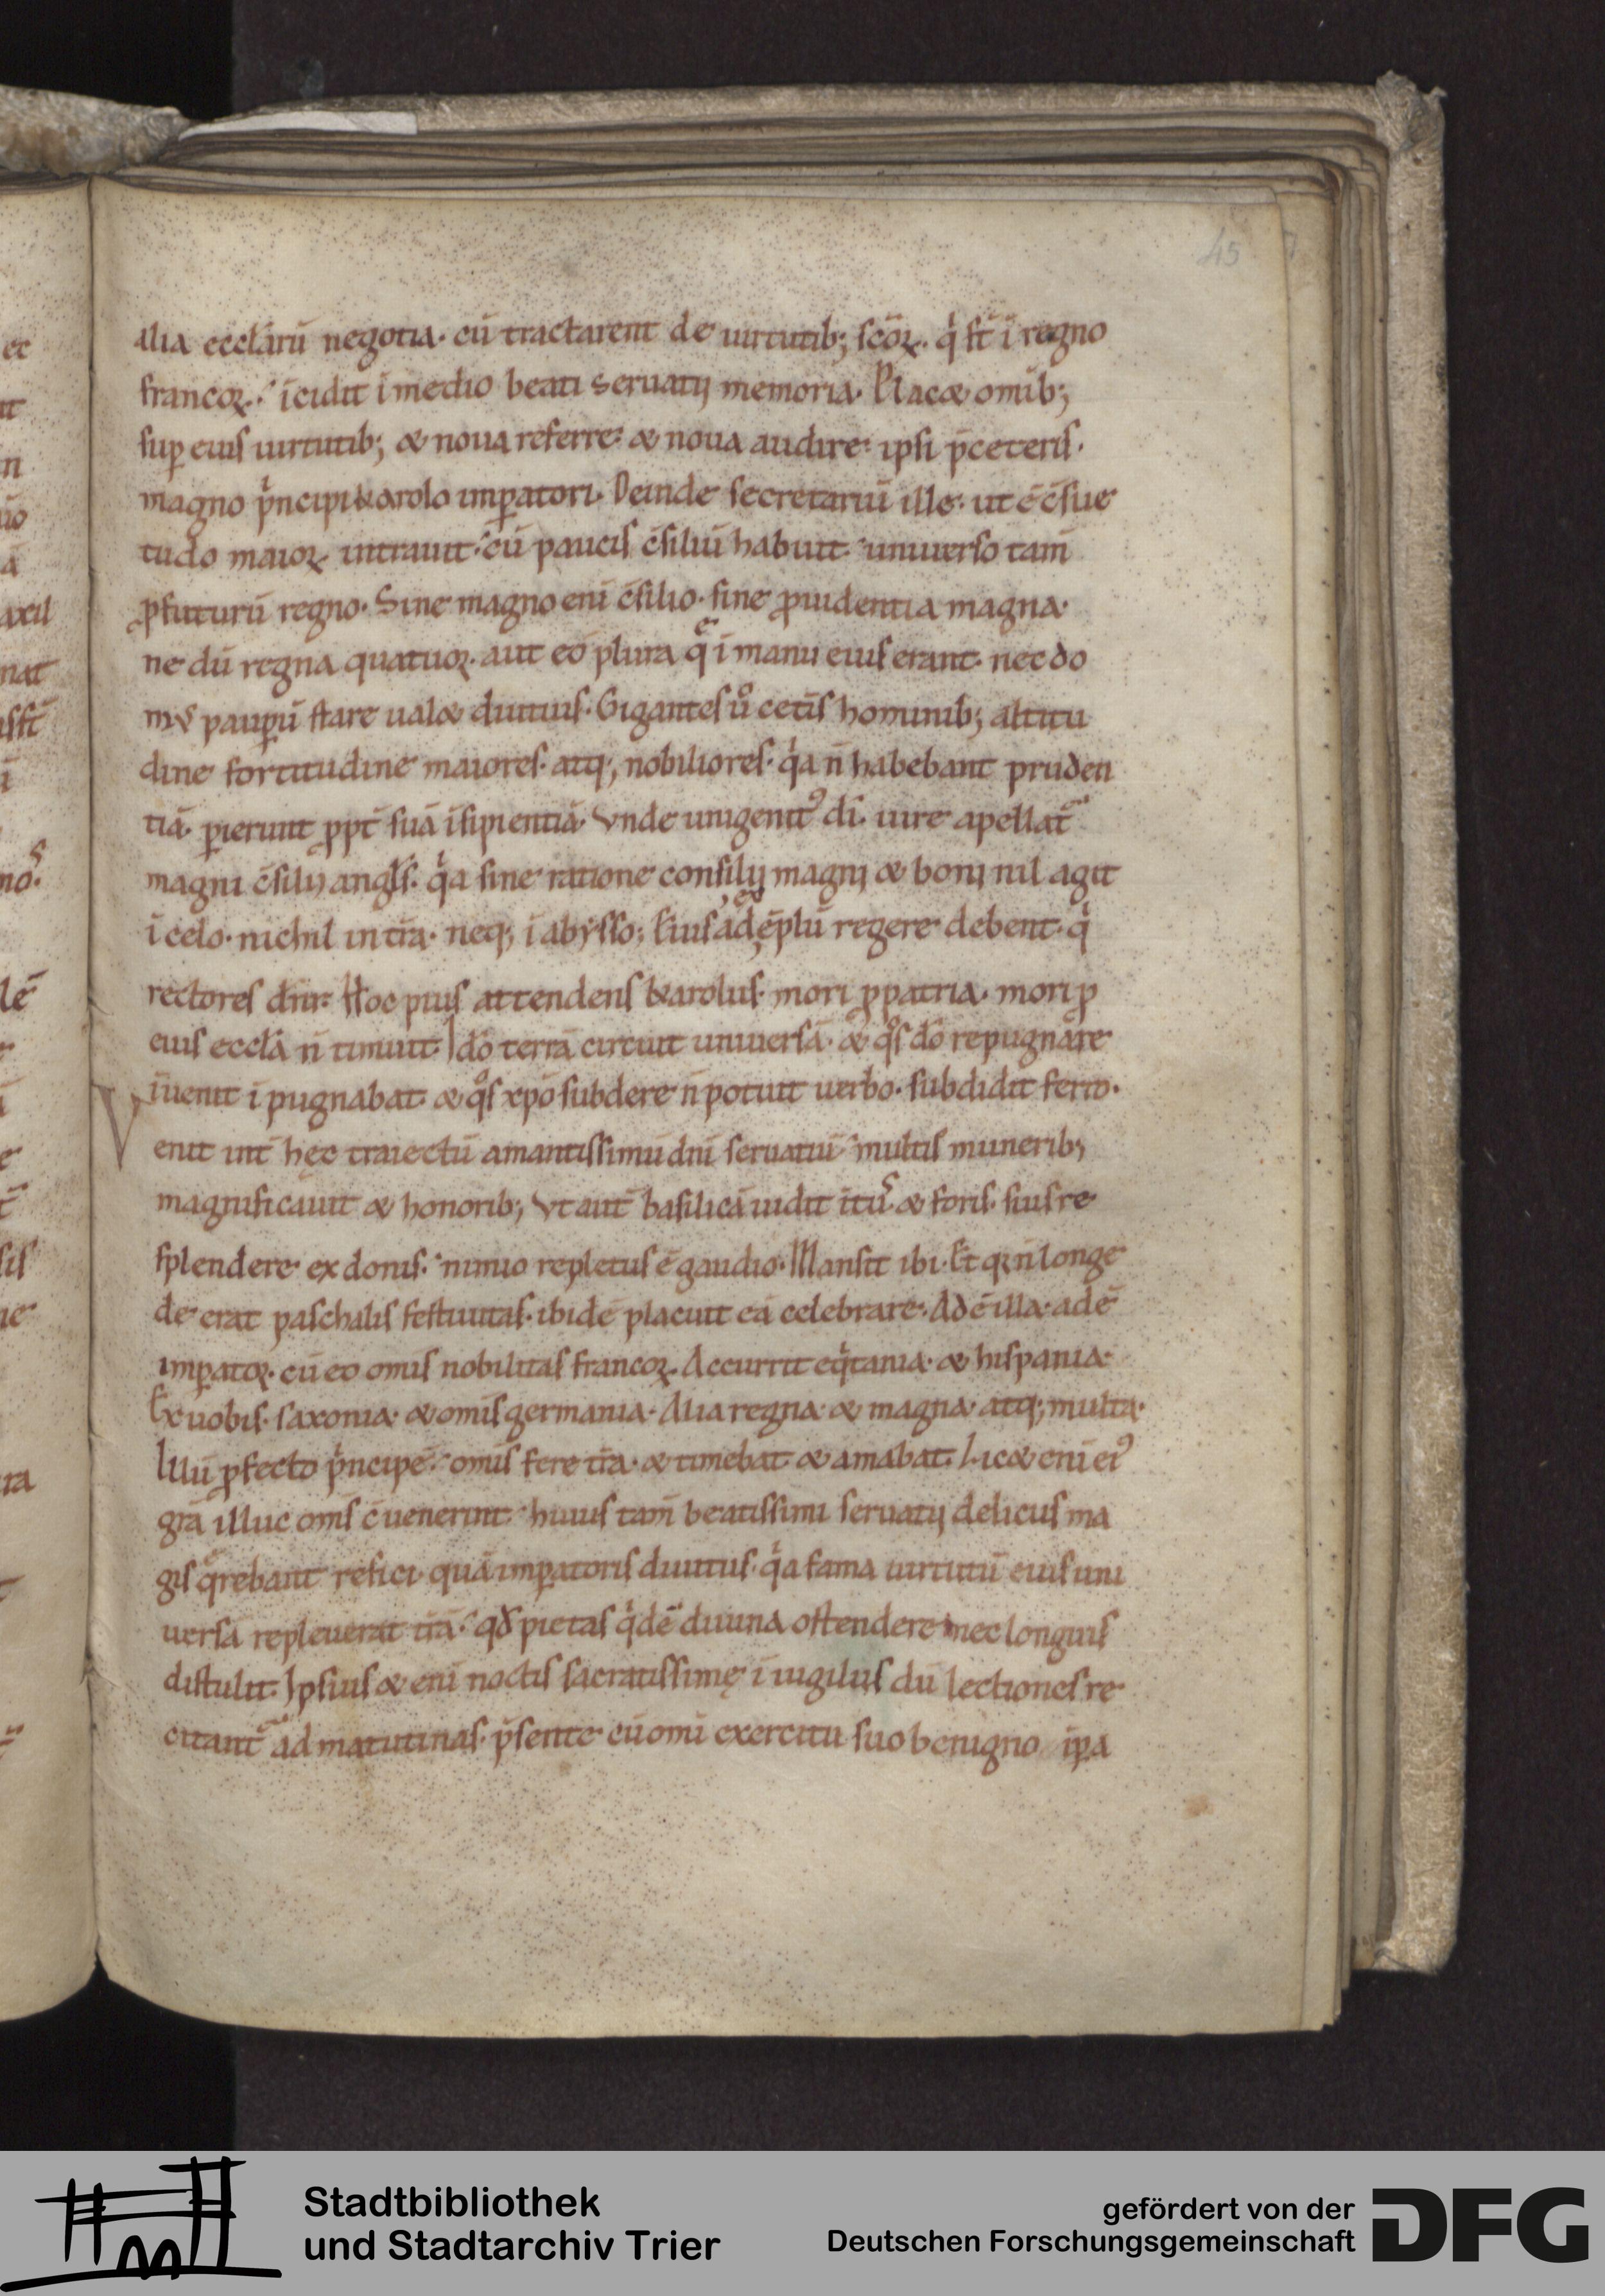 45
alia eccl̄arū negotia· cū tractarent de uirtutib; scōꝝ· qͥ st̄ ī regno
francoꝝ· īcidit ī medio beati seruatij memoria· Placꝫ omib;
suꝑ eius uirtutib; & noua referre· & noua audire· ipsi p̄ceteris·
magno pͥncipi karolo imꝑatori· Deinde secretariū ille· ut ē c̄sue
tudo maioꝝ intrauit· cū paucis c̄siliū habuit· uniuerso tam̄
ꝓfuturū regno· Sine magno eni c̄silio· sine ꝓuidentia magna·
ne dū regna quatuor· aut eo plura q̄ ī manu eius erant· nec do
mꝰ pauꝑū stare ual& diutius· Gigantes uͦ cet̄is hominib; altitu
dine fortitudine maiores· atq; nobiliores· qͥa n̄ habebant pruden
tiā· ꝑierunt ꝓpt̄ suā īsipientiā· Vnde unigenitꝰ dī· iure apellat᷑
magni c̄silij angl̄s· qͥa sine ratione consilij magni & boni nil agit
ī celo· nichil in tr̄a· neq; ī abysso; Eius ad ēplū regere debent· qͥ
rectores dn̄r· Hoc pius attendens karolus· mori ꝓ patria· mori ꝓ
eius eccl̄a n̄ timuit· Idō terrā circuit uniuersā· & qͦs dō repugnare
īuenit īpugnabat· & qͦs xp̄o subdere n̄ potuit uerbo· subdidit ferro·
Venit int̄ hęc traiectū amantissimū dn̄i seruatiū multis munerib;
magnificauit & honorib; Vt aut̄ basilicā uidit ītꝰ & foris· sius re
splendere ex donis· nimio repletus ē gaudio· Mansit ibi· Et qꝛ n̄ longe
de erat paschalis festiuitas· ibidē placuit eā celebrare· Adē illa· adē
imꝑator· cū eo omīs nobilitas francoꝝ· Accurrit eqͥtania· & hispania·
Ex uobis· saxonia· & omīs germania· Alia regna· & magna· atq; multa·
Illū ꝓfecto pͥncipē· omīs fere tr̄a· & timebat & amabat· Lic& eni eiꝰ
gr̄a illuc om̄s c̄uenerint· huius tam̄ beatissimi seruatij deliciis ma
gis q̄rebant refici· quā imꝑatoris diuitiis· qͥa fama uirtutū eius uni
uersā repleuerat tr̄ā· qd̄ pietas qͥdē diuina ostendere nec longius
distulit· Ipsius & eni noctis sacratissimę ī uigiliis dū lectiones re
citant᷑ ad matutinas· p̄sente cū omī exercitu suo benigno īpa
Stadtbibliothek
und Stadtarchiv Trier
gefördert von der
Deutschen Forschungsgemeinschaft
DFG